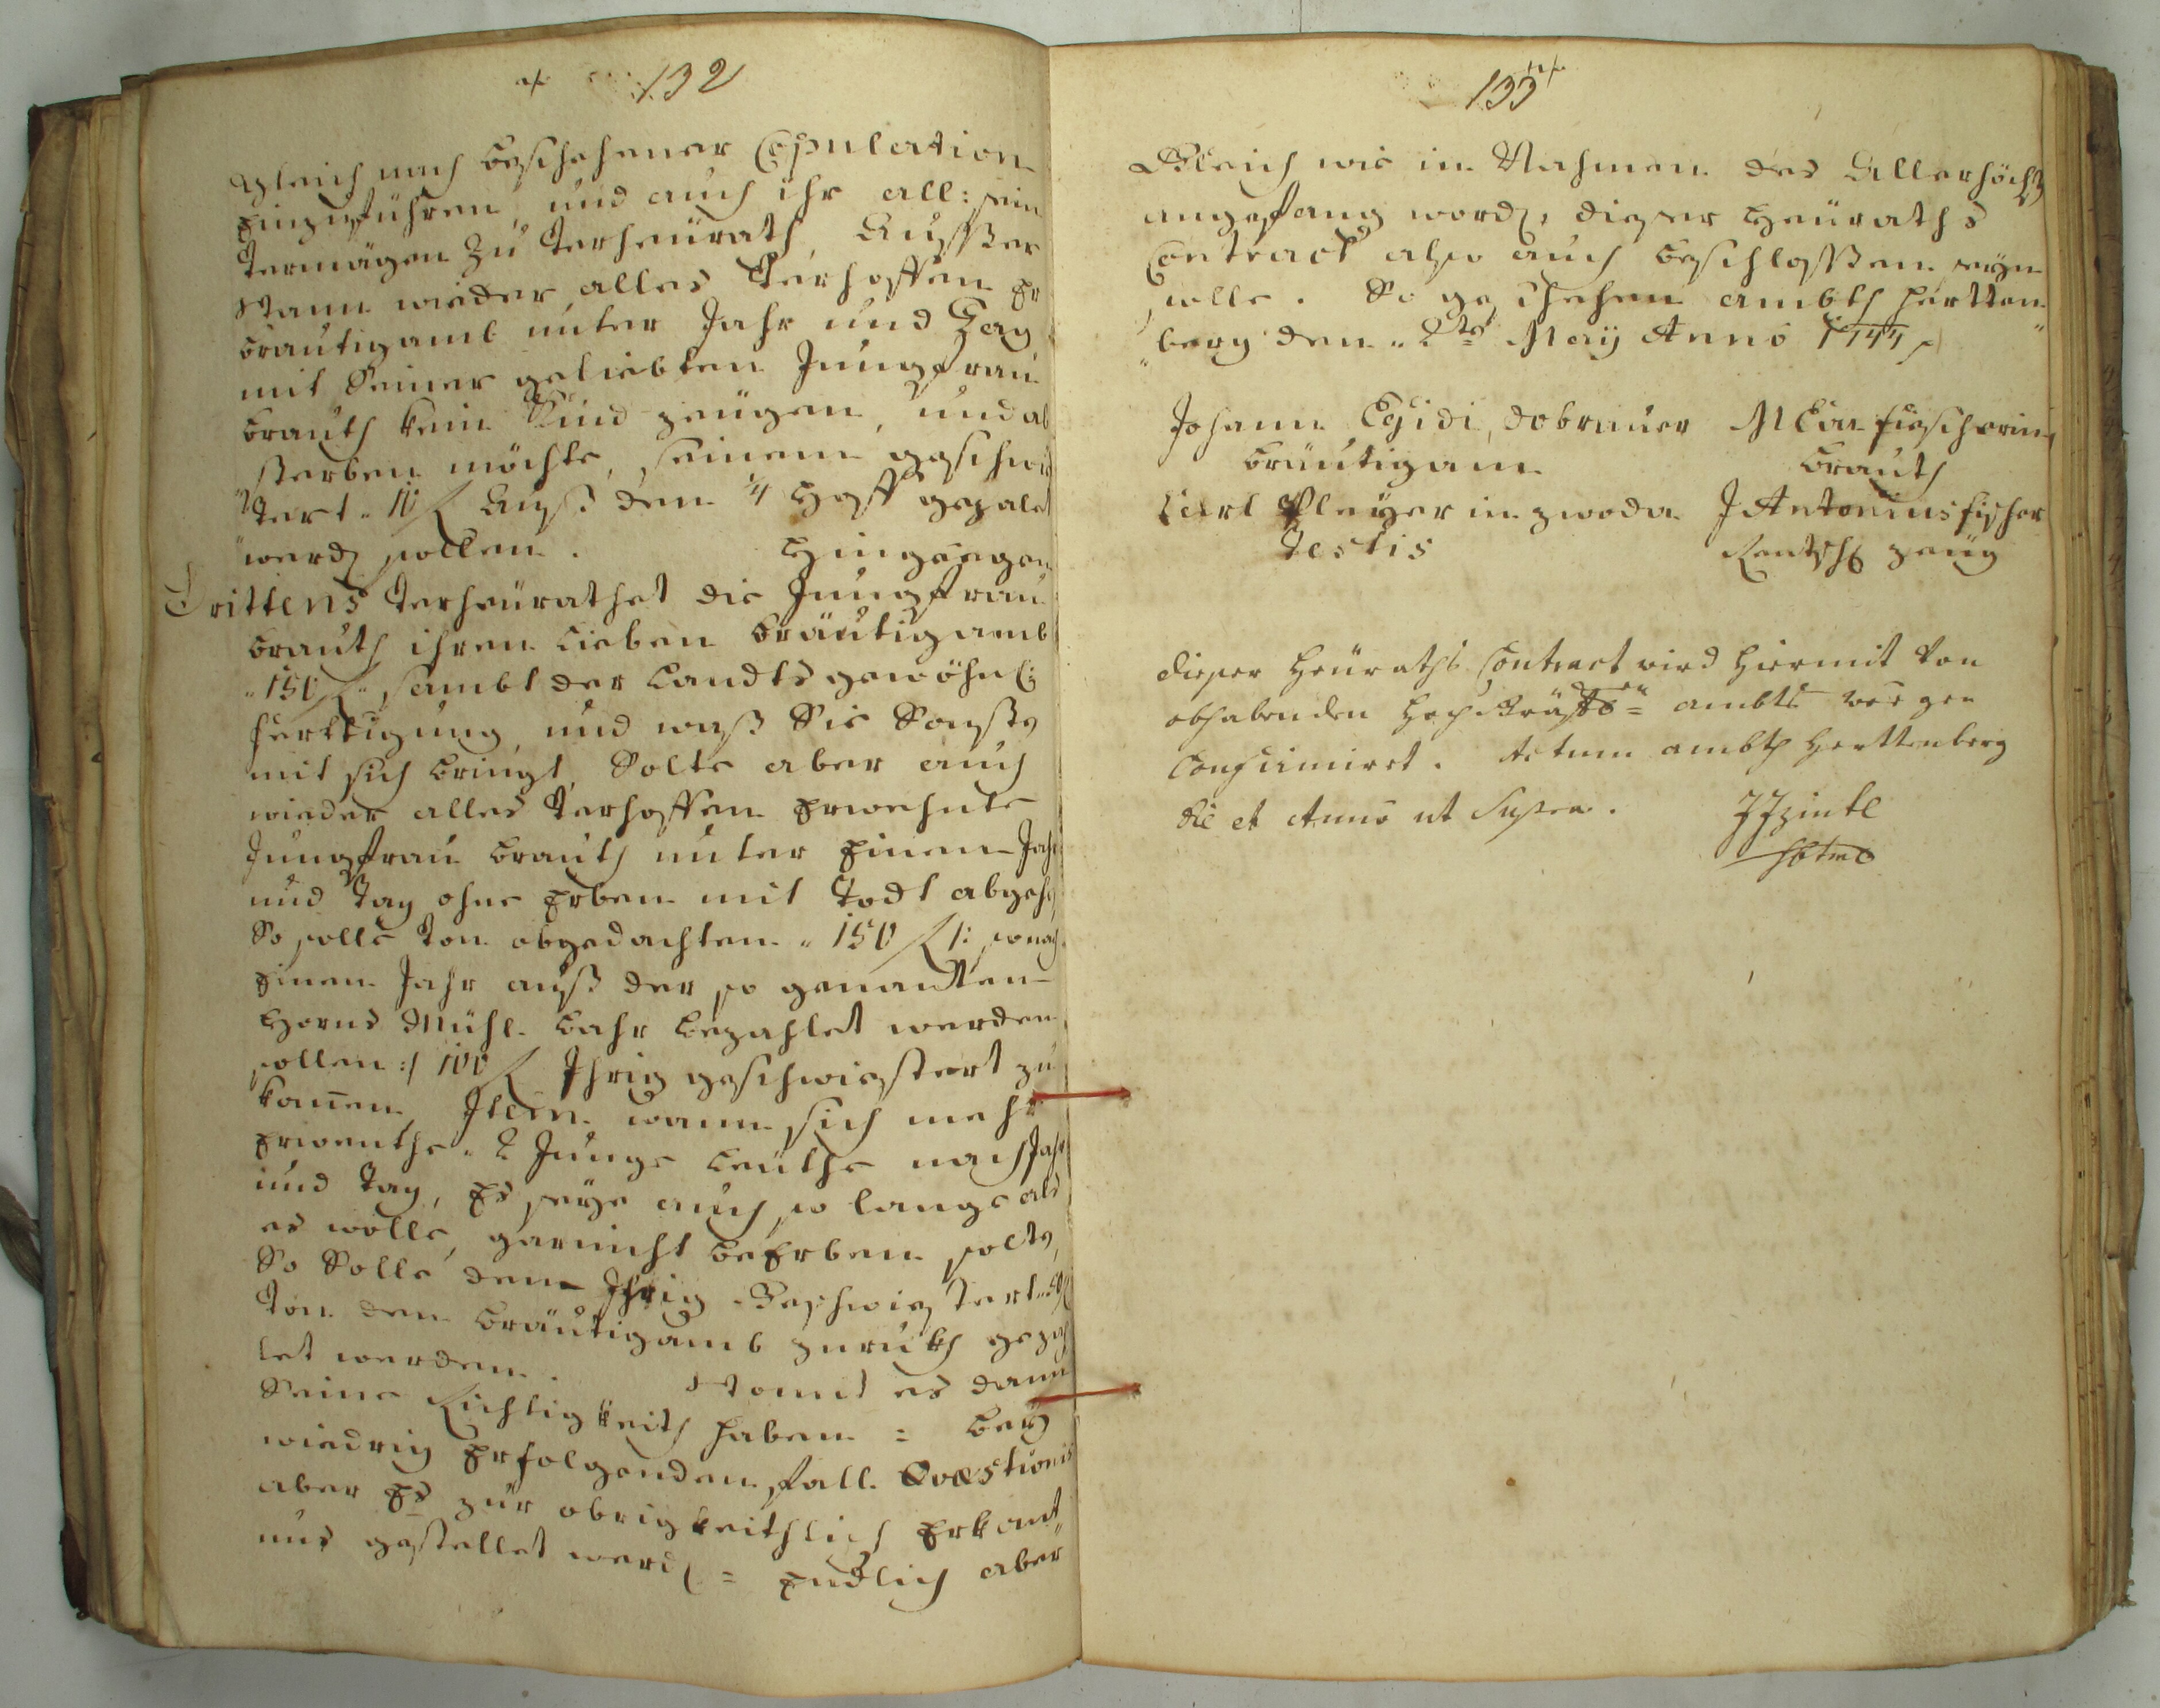 132
gleich nach beschehener Copulation
einzuführen, und auch ihr all: sein
Vermögen zu Verheürath, Ausser
Wann wieder alles Verhoffen Er
Bräutigamb unter Jahr und Tag
mit Seiner geliebten Jungfrau
Brauth kein Kind zeügen, und ab
sterben möchte, seinem geschwis
tert auß dem 1/4 Hoff gezalet
werd sollen. Hingeegen
Drittens Verheürathet die Jungfrau
Brauth ihren Lieben Bräutigamb
150 f sambt der Landts gewöhnl:
ferttigung und waß Sie Sonste
mit sich bringt, Solte aber auch
wieder alles Verhoffen Erwehnte
Jungfrau Brauth unter Einem Jahr
und Tag ohne Erben mit Todt abgeh
So solle Von obgedachten 150 f /: so nach
Einem Jahr auß der so genanten
Horns Mühl Bahr bezahlet werden
sollen :/ 100 f Ihrig geschwiestert zu
komen, Item wann sich mehr
Erwenthe 2 Junge Leüthe nach Jahr
und Tag, Es seye auch so lange als
es wolle, gar nicht beErben solte,
So Solle dem Ihrig Geschwiestert
Von dem Bräutigamb zuruckh gezah
let werden. Womit es dann
Seine Richtigkeith haben = bey
wiedrig Erfolgenden fall Quæstionis
aber Es zur obrigkeithlich Erkant
nus gestellet werd = Endlich aber
133
Gleich wie in Nahmen des Allerhöchst
angefang word, dieser Heüraths
Contract also auch beschlossen seyn
solle. So geschehen ambth Hertten
berg den 2te May Anno 1744
Johann Egidi dobrauer
Bräutigam
Brauth
Carl Pleyer in zwoda
Testis
Antonius fischer
zeüg
dieser Heüraths Contract wird hiermit von
obhabenden ambts wegen
Confirmiret. Actum ambth Herttenberg
die et Anno ut Supra.